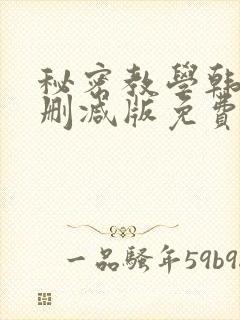 秘密教學韩
删减版免費
一品騷年59b9